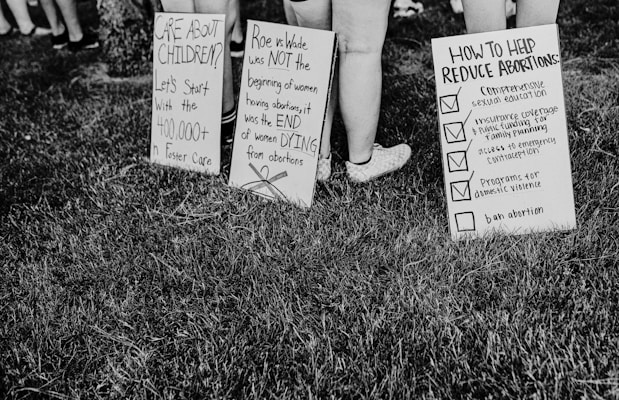 CARE ABOUT
CHILDREN?
Let's Start
With the
400,000+
n Foster Care
Roe vs Wade
was NOT the
beginning of women
having abortions, it
was the END
of women DYING
from abortions
HOW TO HELP
REDUCE ABORTIONS:
Comprehensive
sexual education
insurance coverage
& public funding for
family planning
access to emergency
contraception
Programs for
domestic violence
ban abortion